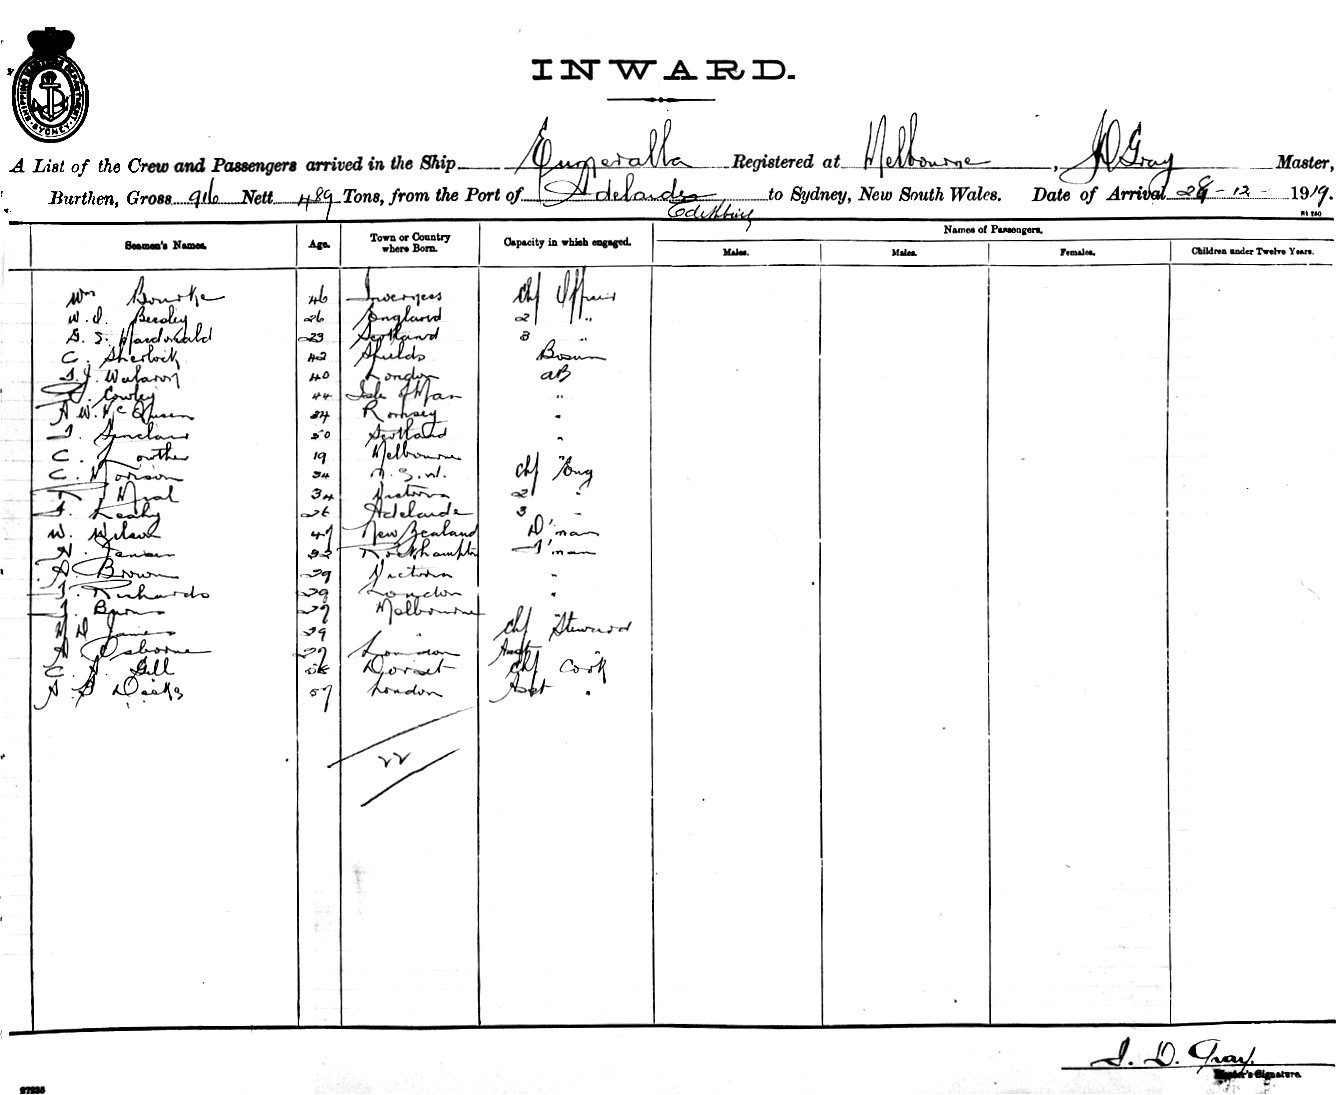 SHIPPING MASTERS DEPARTMENT SYDNEY
INWARD.
A List of the Crew and Passengers arrived in the Ship Eumeralla Registered at Melbourne, J D Gray Master,
Burthen, Gross 916 Nett 489 Tons, from the Port of Adelaide to Sydney, New South Wales. Date of Arrival 28-12-1919.
Edithburg
Seamen's Names. Age. Town or Country where Born. Capacity in which engaged. Names of Passengers.
Males. Males. Females. Children under Twelve Years.
Wm Bourke 46 Inverness Chf Officer
W. I. Beesley 26 England 2 "
G. S. Macdonald 23 Scotland 3 "
C. Sherlock 42 Shields Bosun
40 London AB
Cowley 44 Isle of Man "
A W. McQueen 34 Romsey "
J. Sinclair 50 Scotland "
C. Lowther 19 Melbourne "
C. Morison 34 N.S.W. Chf Eng
34 Victoria 2 "
J. Leahy 26 Adelaide 3 "
W. Wilson 47 New Zealand D'man
H. Jensen 32 Rockhampton F'man
A. Brown 29 Victoria "
J. Richards 29 London "
J. Burns 27 Melbourne "
James 29 " Chf Steward
A Osborne 27 London Asst "
C. A. Gill Dorset Chf Cook
A B Deeks 57 London Asst "
22
J. D. Gray.
Master's Signature.